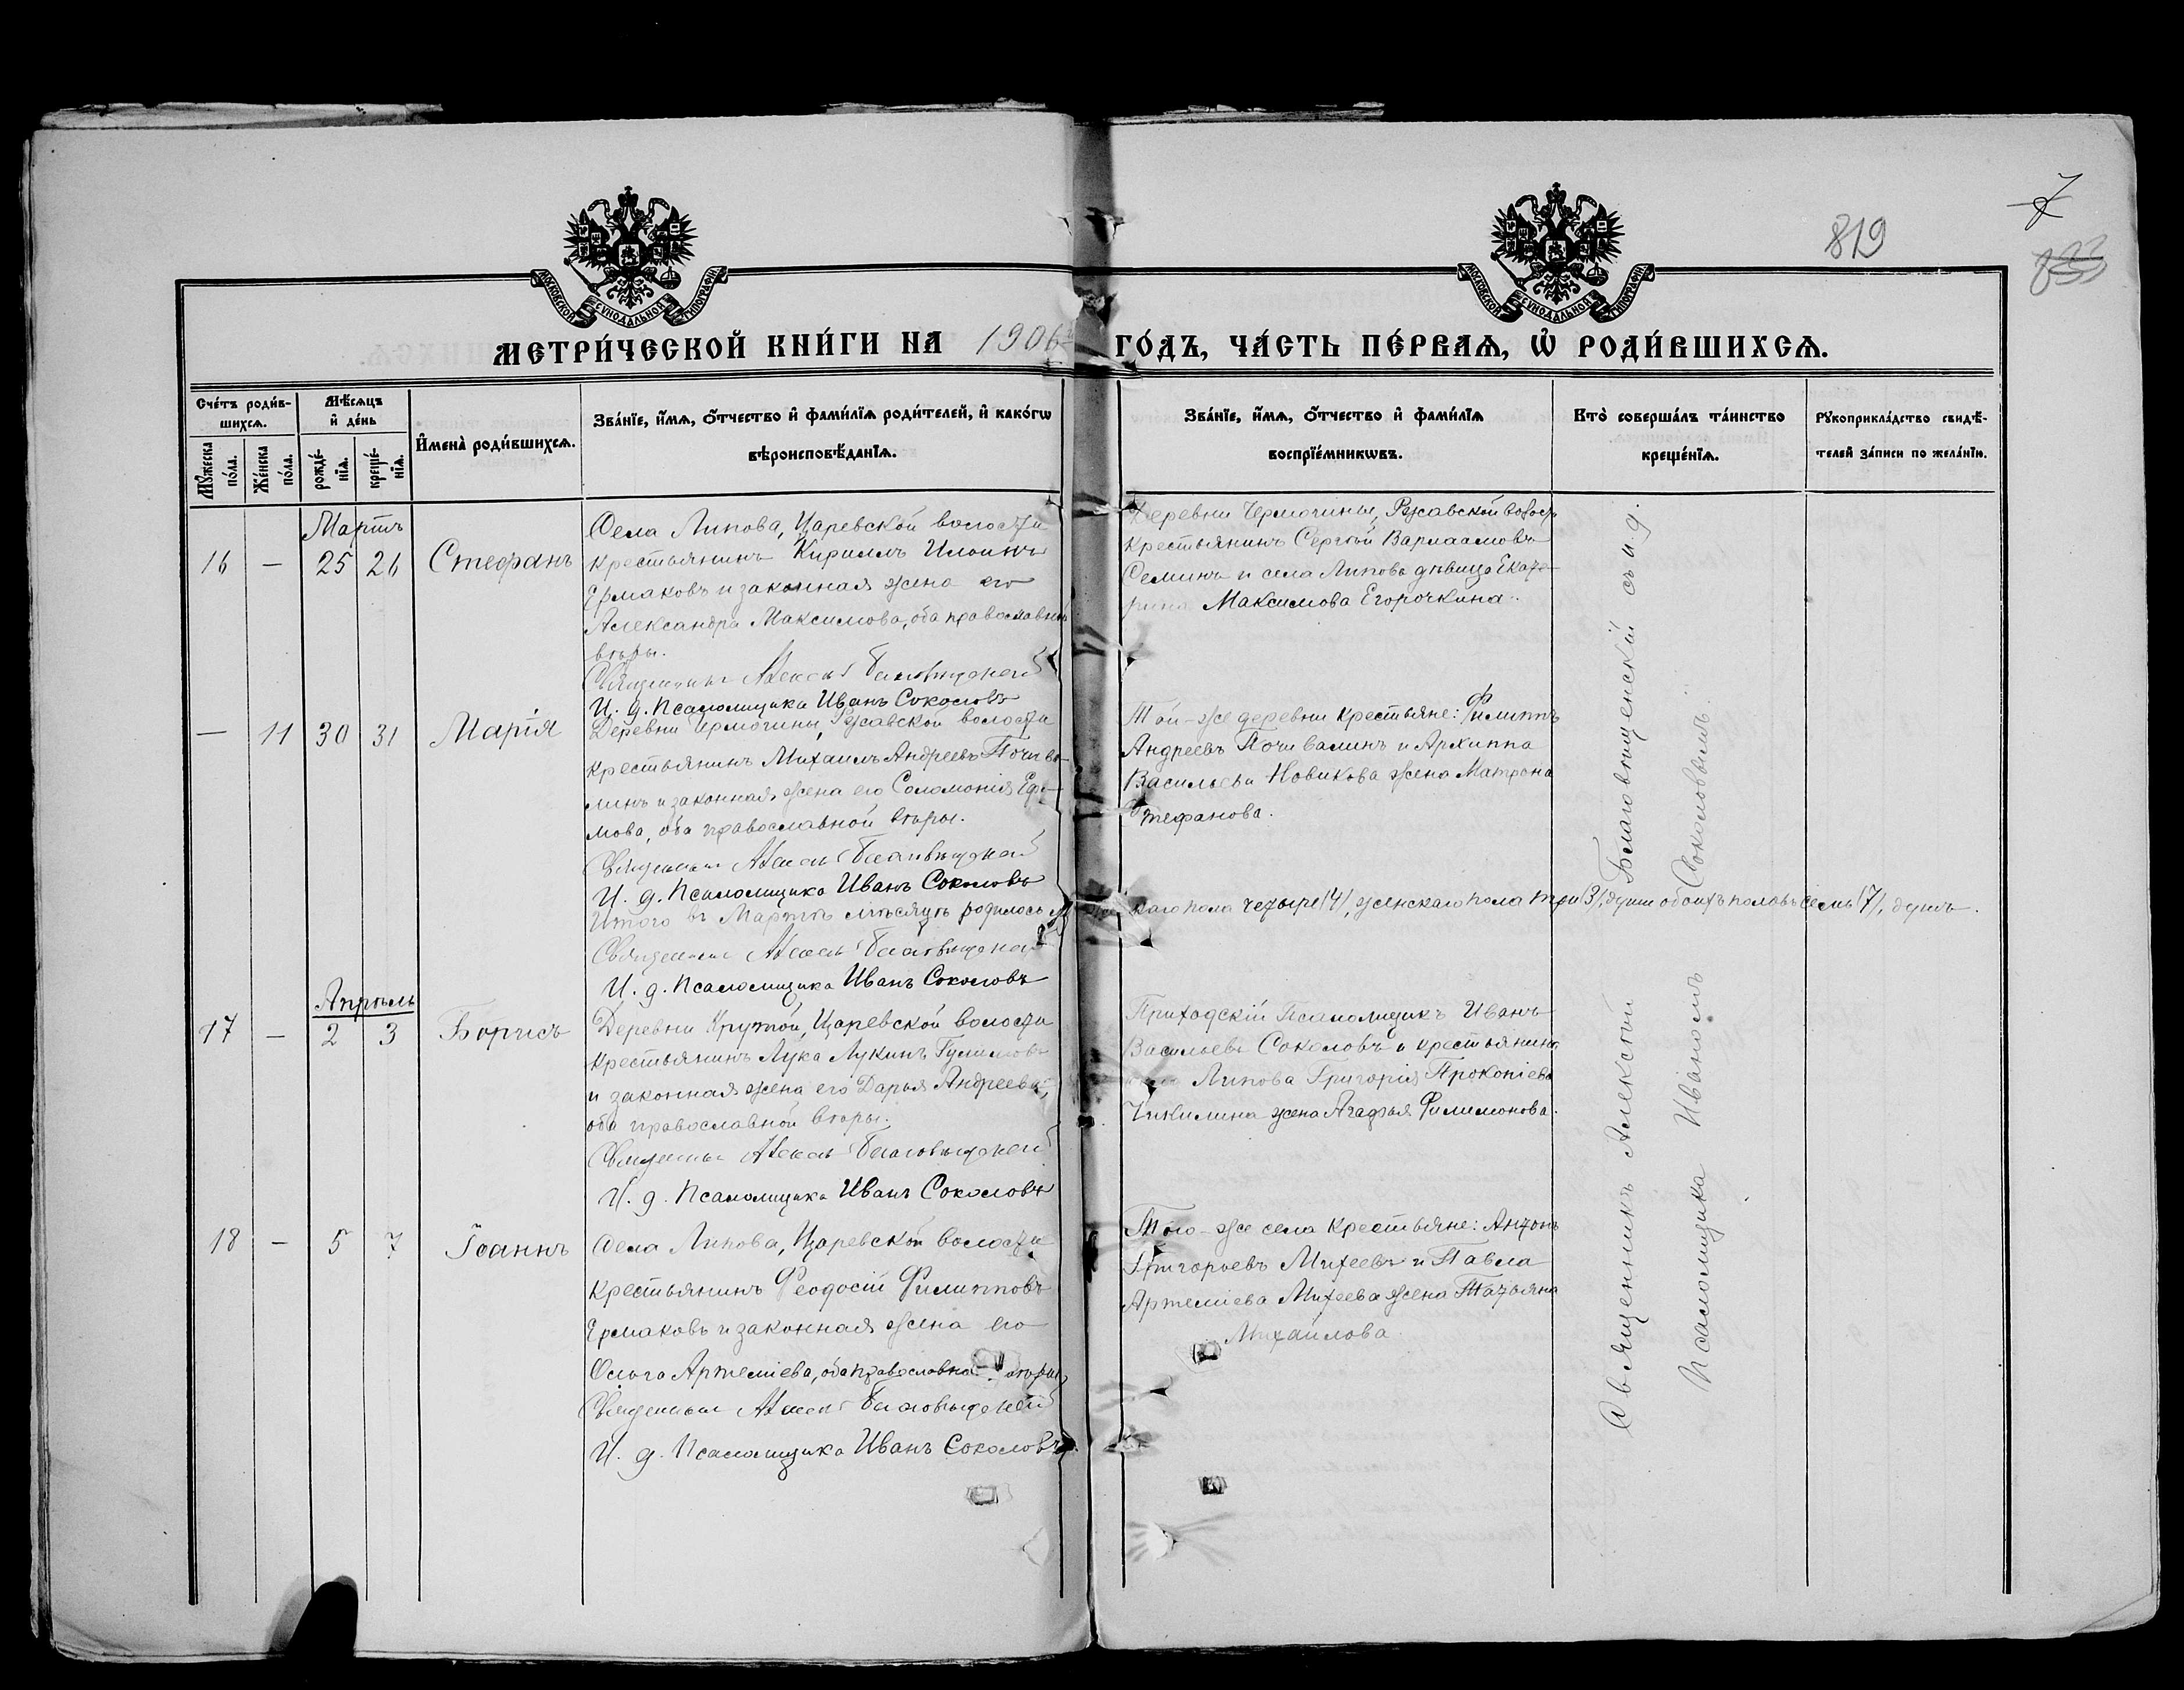 819
7
МОСКОВСКОЙ СУНОДАЛЬНОЙ ТИПОГРАФІИ
МОСКОВСКОЙ СУНОДАЛЬНОЙ ТИПОГРАФІИ
МЕТРИ́ЧЕСКОЙ КНИ́ГИ НА 1906 ГО́ДЪ, ЧА́СТЬ ПЕ́РВАѦ, Ѡ҆ РОДИ́ВШИХСѦ.
Сче́тъ роди́в-
шихсѧ.
Мѣ́сѧцъ
и҆ де́нь
Мꙋ́жеска
по́ла.
Же́нска
по́ла.
рожде́-
нїѧ.
креще́-
нїѧ.
И҆мена̀ роди́вшихсѧ.
Зва́нїе, и҆́мѧ, о҆́тчество и҆ фами́лїѧ роди́телей, и҆ како́гѡ
вѣроисповѣ́данїѧ.
Зва́нїе, и҆́мѧ, о҆́тчество и҆ фами́лїѧ
воспрїе́мникѡвъ.
Кто̀ соверша́лъ та́инство
креще́нїѧ.
Рꙋкоприкла́дство свидѣ́-
телей за́писи по жела́нїю.
Мартъ
16 — 25 26 Стефанъ
Села Липова, Царевской волости
крестьянинъ Кириллъ Ильинъ
Ермаковъ и законная жена его
Александра Максимова, оба православной
вѣры.
Священникъ Алексѣй Благовѣщенскій
И. д. Псаломщика Иванъ Соколовъ
Деревни Чермочины, Ржавской волости
крестьянинъ Сергѣй Варлаамовъ
Семинъ и села Липова дѣвица Екате-
рина Максимова Егорочкина.
— 11 30 31 Марія
Деревни Чермочины, Ржавской волости
крестьянинъ Михаилъ Андреевъ Почива-
линъ и законная жена его Соломонія Ефи-
мова, оба православной вѣры.
Священникъ Алексѣй Благовѣщенскій
И. д. Псаломщика Иванъ Соколовъ
Той-же деревни крестьяне: Филиппъ
Андреевъ Почивалинъ и Архиппа
Васильева Новикова жена Матрона
Стефанова.
Итого въ Мартѣ мѣсяцѣ родилось мужескаго пола четыре (4), женскаго пола три (3), души обоихъ половъ семь (7), душъ.
Священникъ Алексѣй Благовѣщенскій
И. д. Псаломщика Иванъ Соколовъ
Апрѣль
17 — 2 3 Борисъ
Деревни Крутой, Царевской волости
крестьянинъ Лука Лукинъ
и законная жена его Дарья Андреева,
оба православной вѣры.
Священникъ Алексѣй Благовѣщенскій
И. д. Псаломщика Иванъ Соколовъ
Приходскій Псаломщикъ Иванъ
Васильевъ Соколовъ и крестьянина
села Липова Григорія Прокопіева
Чикилина жена Агафья Филимонова.
18 — 5 7 Іоаннъ
Села Липова, Царевской волости
крестьянинъ Феодосій Филипповъ
Ермаковъ и законная жена его
Ольга Артеміева, оба православной вѣры
Священникъ Алексѣй Благовѣщенскій
И. д. Псаломщика Иванъ Соколовъ.
Того-же села крестьяне: Антонъ
Григорьевъ Михеевъ и Павла
Артеміева Михеева жена Татьяна
Михайлова.
Священникъ Алексѣй Благовѣщенскій съ и. д.
Псаломщика Иваномъ Соколовымъ.